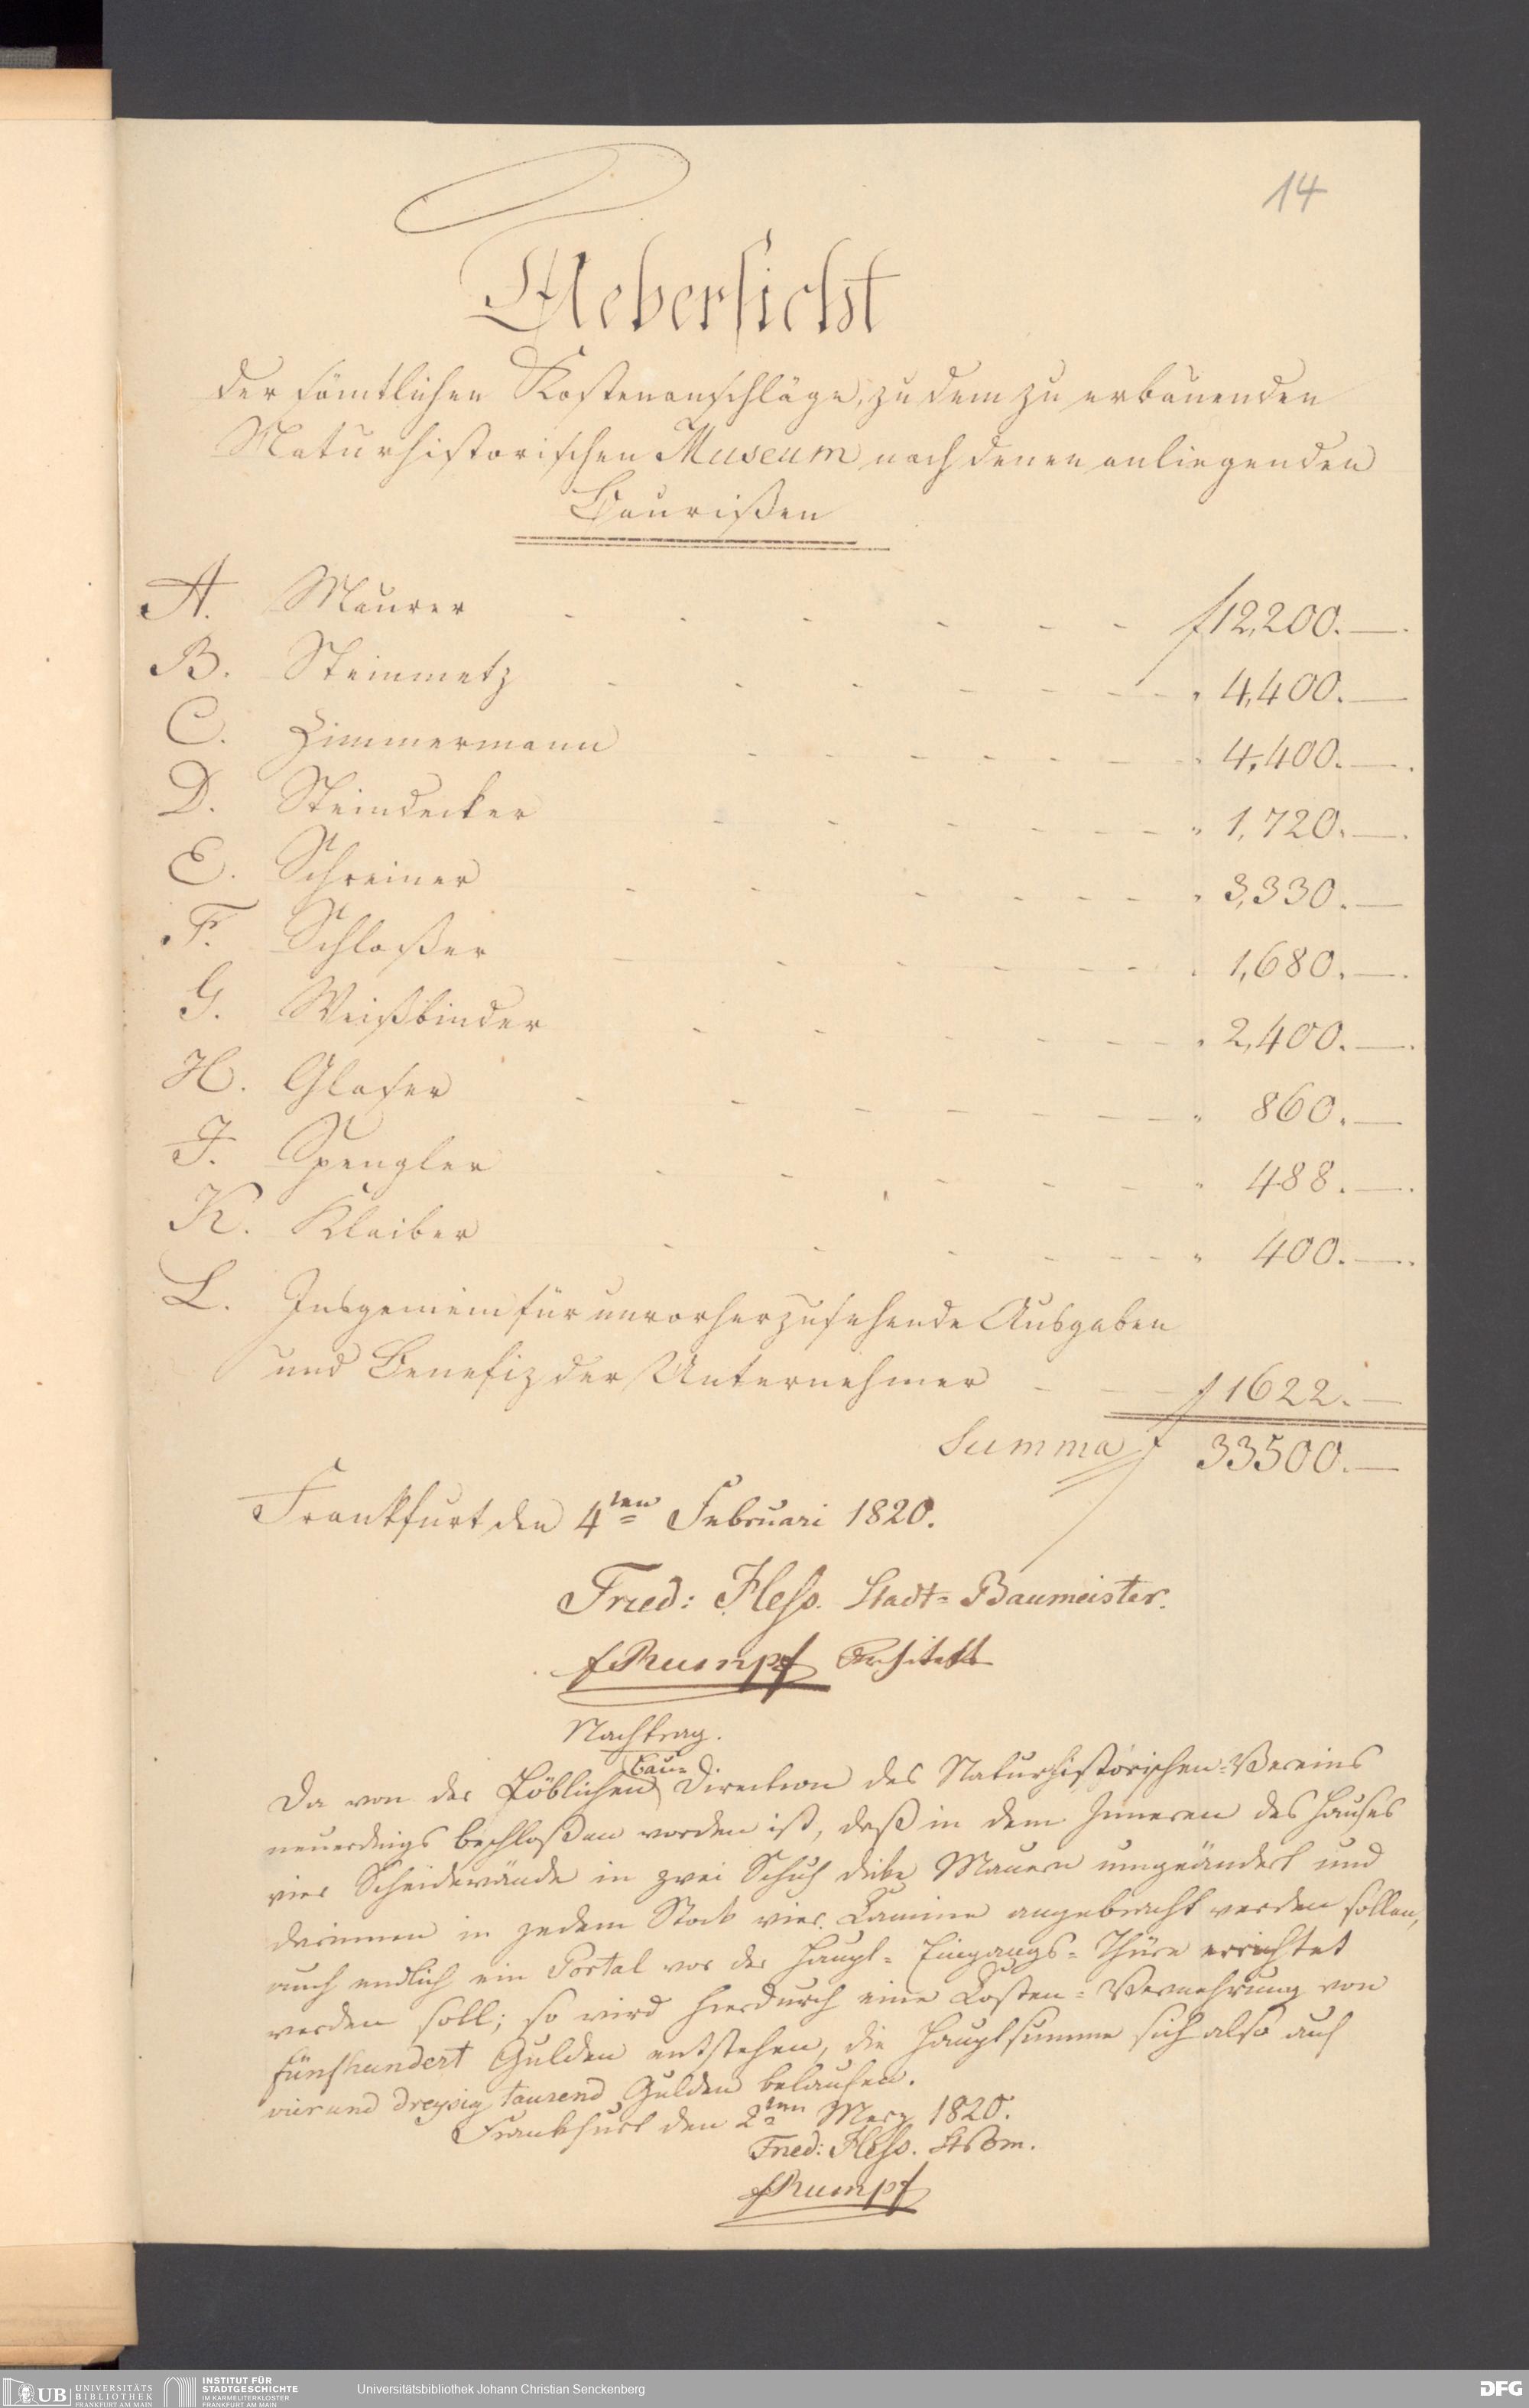 14
Uebersicht
der sämtlichen Kostenanschläge, zu dem zu erbauenden
Naturhistorischen Museum nach denen anliegenden
Baurißen
A. Maurer - - - - - - f 12,200.—.
B. Steinmetz - - - - - - - " 4,400.—
C. Zimmermann - - - - - - - " 4,400.—.
D. Steindecker - - - - - - " 1,720.—.
E. Schreiner - - - - - - " 3,330.—
F. Schloßer - - - - - - " 1,680.—.
G. Weißbinder - - - - - - " 2,400.—.
H. Glaser - - - - - - - " 860.—
J. Spengler - - - - - " 488.—.
K. Kleiber - - - - - - " 400.—.
L. Insgemein für unvorherzusehende Ausgaben
und Benefiz der Unternehmer - - - f 1622.—
Summa f 33500.—
Frankfurt den 4ten Februari 1820.
Fried: Hess. Stadt=Baumeister.
f Rumpf Architekt
Nachtrag.
Bau=
Da von der Löblichen Direction des Naturhistorischen=Vereins
neuerdings beschloßen worden ist, daß in dem Inneren des Hauses
vier Scheidewände in zwei Schuh dicke Mauern umgeändert und
darinnen in jedem Stock vier Camine angebracht werden sollen,
auch endlich ein Portal vor der Haupt=Eingangs=Thüre errichtet
werden soll; so wird hierdurch eine Kosten=Vermehrung von
fünfhundert Gulden entstehen, die Hauptsumme sich also auf
vierund dreysig tausend Gulden belaufen.
Frankfurt den 2ten Merz 1820.
Fried: Hess. StBm.
f Rumpf
UB UNIVERSITÄTS
BIBLIOTHEK
FRANKFURT AM MAIN
INSTITUT FÜR
STADTGESCHICHTE
IM KARMELITERKLOSTER
FRANKFURT AM MAIN
Universitätsbibliothek Johann Christian Senckenberg
DFG